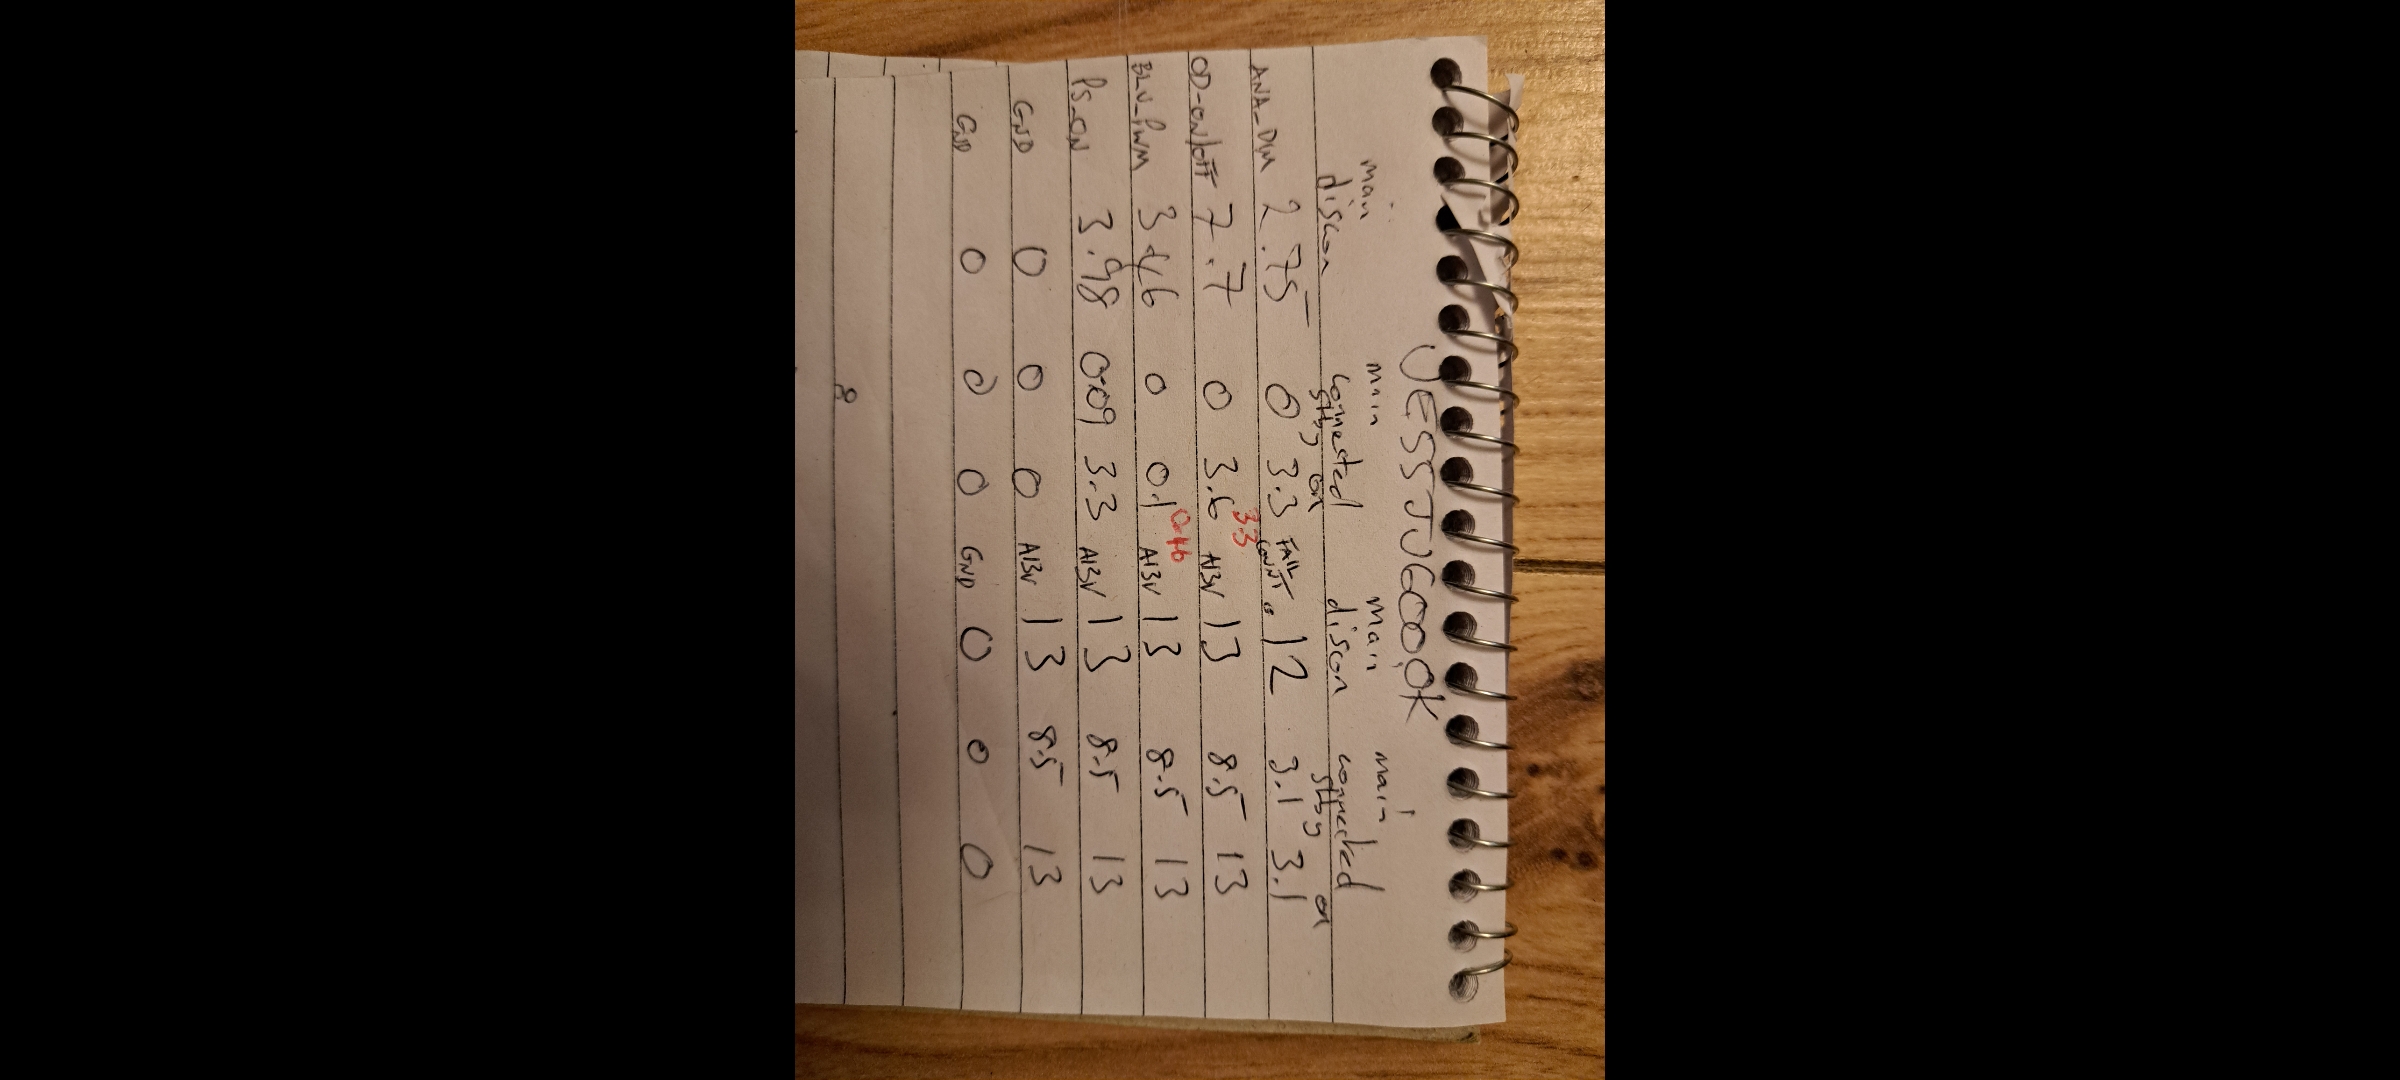 UESSJUGOOOK
main discon main connected main discon main connected
stby on stby on
ANA_DIM 2.75 0 3.3 FAIL COUNT 12 3.1 3.1
OD-on/off 7.7 0 3.6 3.3 A13V 13 8.5 13
BLU_PWM 3.46 0 0.1 0.46 A13V 13 8.5 13
PS_ON 3.98 0.09 3.3 A13V 13 8.5 13
GND 0 0 0 A13V 13 8.5 13
GND 0 0 0 GND 0 0 0
8